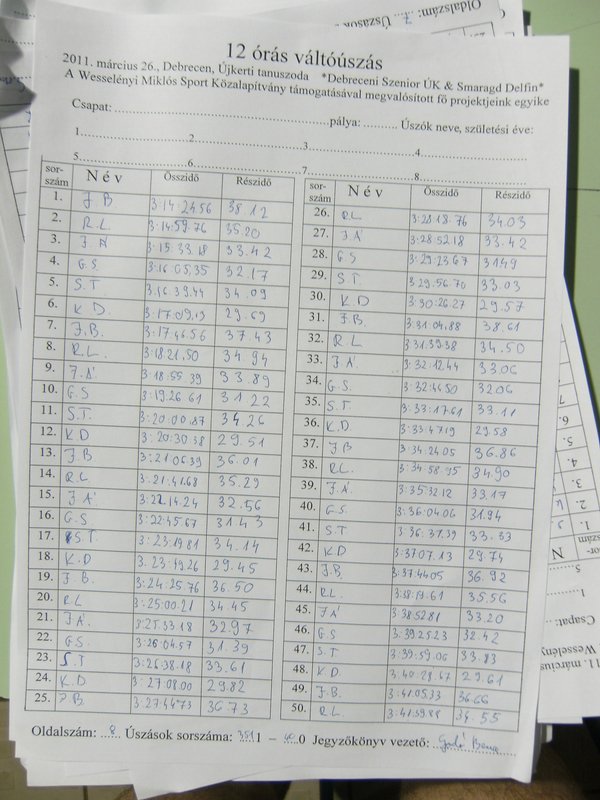 12 órás váltóúszás
2011. március 26., Debrecen, Újkerti tanuszoda *Debreceni Szenior ÚK & Smaragd Delfin*
A Wesselényi Miklós Sport Közalapítvány támogatásával megvalósított fő projektjeink egyike
Csapat: pálya: Úszók neve, születési éve:
1. 2. 3. 4.
5. 6. 7. 8.
sor-szám Név Összidő Részidő
1. J B 3:14:24.56 38.12
2. R.L. 3:14:59.76 35.20
3. J.A' 3:15.33.18 33.42
4. G.S 3:16:05.35 32.17
5. S.T 3.16.39.44 34.09
6. K D. 3:17:09.13 29.69
7. J.B. 3:17:46.56 37.43
8. R.L. 3:18:21,50 34.94
9. J.A' 3:18:55 39 33.89
10. G.S 3:19:26 61 31 22
11. S.T. 3:20:00.87 34 26
12. K D 3:20:30 38 29.51
13. J.B. 3:21:06.39 36.01
14. R.L. 3:21:41.68 35.29
15. J A' 3:22:14.24 32.56
16. G.S 3:22:45.67 31 43
17. S.T. 3:23:19.81 34.14
18. K.D 3.23:49.26 29.45
19. J.B. 3:24:25.76 36.50
20. R.L 3:25:00.21 34.45
21. J.A'. 3:25 33 18 32.97
22. G.S. 3:26:04.57 31.39
23. S.T 3:26:38.18 33.61
24. K.D. 3:27:08.00 29.82
25. J B. 3:27:44.73 36.73
sor-szám Név Összidő Részidő
26. R.L. 3:28:18.76 34.03
27. J A' 3:28:52.18 33.42
28. G S 3:29:23 67 31.49
29. S.T. 3 29.56.70 33.03
30. K.D 3:30:26.27 29.57
31. J B. 3:31:04.88 38.61
32. R L 3:31:39.38 34.50
33. J A' 3:32:12.44 33.06
34. G.S. 3:32:44.50 32.06
35. S.T. 3:33:17.61 33.11
36. K.D 3:33 47.19 29.58
37. J B 3:34:24.05 36.86
38. R.L. 3:34:58.95 34.90
39. J.A'. 3:35:32 12 33.17
40. G.S. 3:36:04.06 31.94
41. S.T 3:36:37.39 33.33
42. K D 3:37:07.13 29.74
43. J.B. 3:37:44.05 36.92
44. R.L. 3:38:19.61 35.56
45. J A'. 3 38:52.81 33.20
46. G S 3:39:25.23 32.42
47. S.T 3:39:59.06 33.83
48. K.D 3.40:28.67 29.61
49. J.B. 3:41:05.33 36.66
50. R.L. 3:41:59.88 34.55
Oldalszám: 8 Úszások sorszáma: 351 – 400 Jegyzőkönyv vezető: